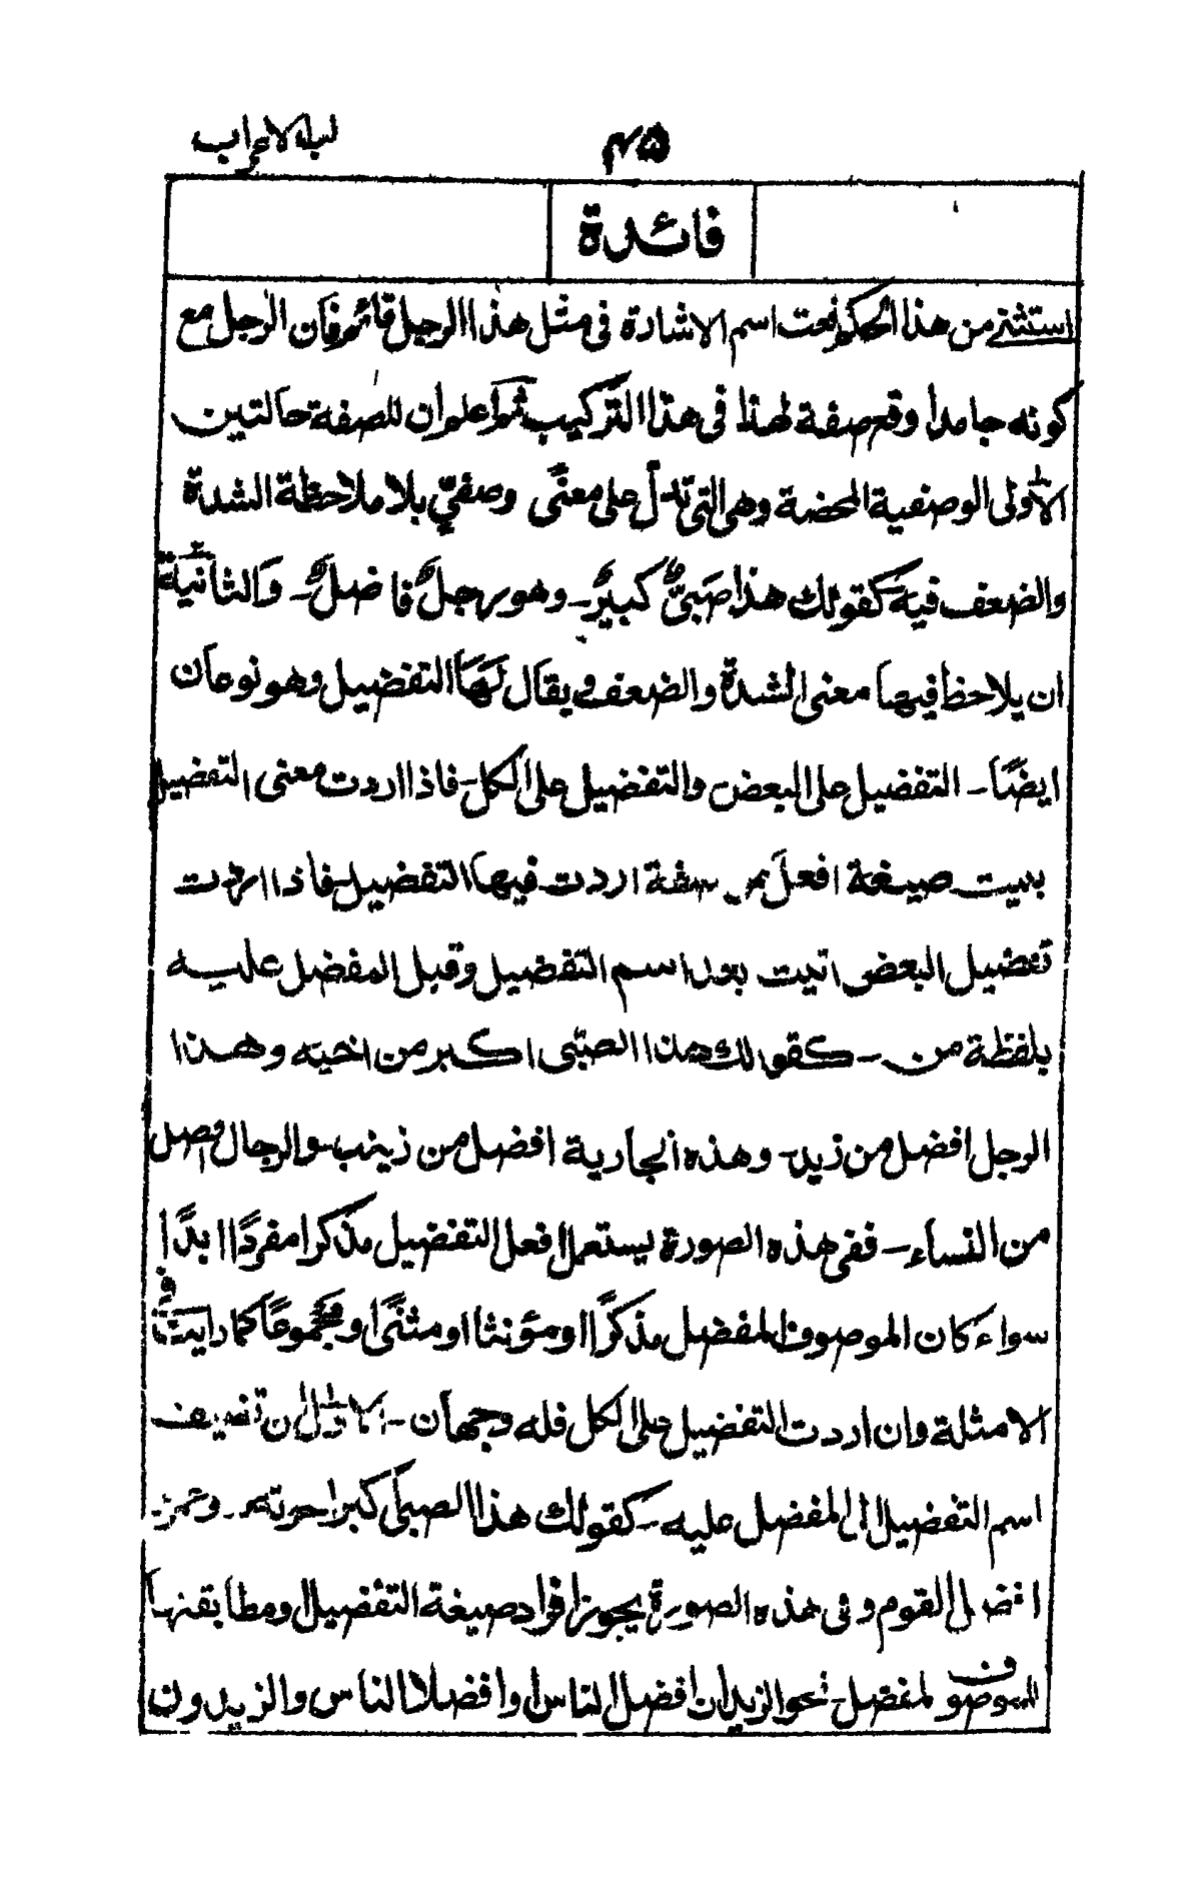 ۴۵
لب الاعراب
فائدة
استثنى من هذا الحكم نعت اسم الاشارة فى مثل هذا الرجل قائم فان الرجل مع
كونه جامدا وقع صفة لهذا فى هذا التركيب ثم اعلم ان للصفة حالتين
الأولى الوصفية المحضة وهى التى تدلّ على معنًى وصفيّ بلا ملاحظة الشدة
والضعف فيه كقولك هذا صبىٌّ كبيرٌ۔ وهو رجلٌ فاضلٌ۔ والثانية
ان يلاحظ فيها معنى الشدة والضعف ويقال لها التفضيل وهو نوعان
ايضًا۔ التفضيل على البعض والتفضيل على الكل۔ فاذا اردت معنى التفضيل
بنيت صيغة افعل من صفة اردت فيها التفضيل۔ فاذا اردت
تفضيل البعض اتيت بعد اسم التفضيل وقبل المفضل عليه
بلفظة من ۔ كقولك هذا الصبى اكبر من اخيه وهذا
الرجل افضل من زيد۔ وهذه الجارية افضل من زينب۔ والرجال افضل
من النساء۔ ففى هذه الصورة يستعمل افعل التفضيل مذكرا مفردًا ابدًا
سواء كان الموصوف المفضل مذكرًا او مؤنثا او مثنًى او مجموعًا كما رايت فى
الامثلة وان اردت التفضيل على الكل فله وجهان۔ الاول ان تضيف
اسم التفضيل الى المفضل عليه۔ كقولك هذا الصبى اكبر اخوته۔ وعمرو
افضل القوم وفى هذه الصورة يجوز افراد صيغة التفضيل ومطابقتها
للموصوف المفضل۔ نحو الزيدان افضل الناس او افضلا الناس والزيدون